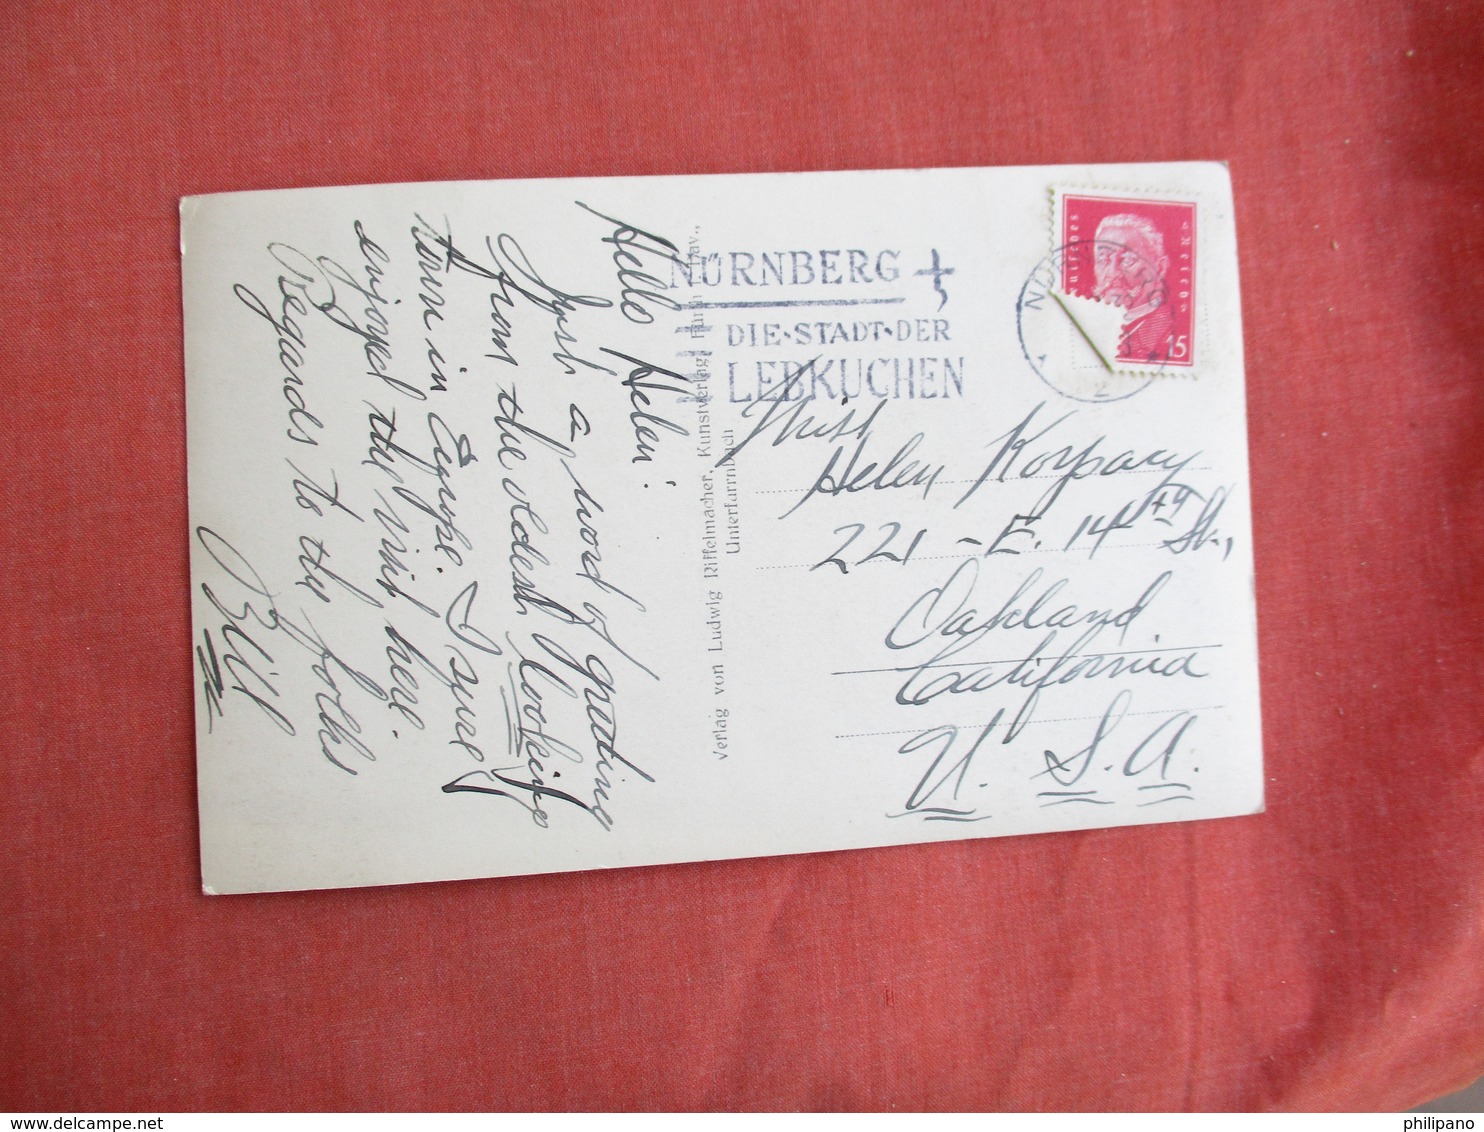 Hello Helen:
Just a word of greeting
from the oldest looking
town in Europe. I sure
enjoyed the visit here.
Regards to thy folks
Bill
Verlag von Ludwig Riffelmacher, Kunstverlag, Fürth i. Bav.,
Unterfarrnbach
NÜRNBERG
DIE·STADT·DER
LEBKUCHEN
NÜRNBERG
2
Deutsches Reich
15
Miss
Helen Korpacy
221 - E. 14th St.,
Oakland
California
U. S. A.
philipano